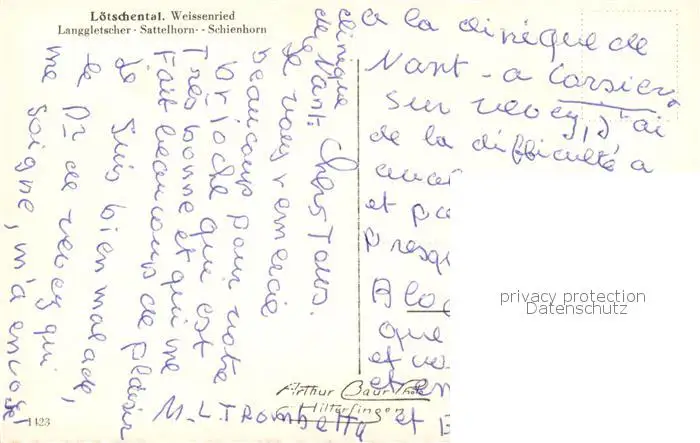 Lötschental. Weissenried
Langgletscher - Sattelhorn - - Schienhorn
clinique
de Nant. Chers Tous.
Je vous remercie
beaucoup pour votre
brioche qui est
Très bonne et qui me
Fait beaucoup de plaisir
Je suis bien malade,
le Dr de vevey qui
me soigne, m'a envoyé
à la clinique de
Nant - a Corsier
sur vevey, J'ai
de la difficulté a
et
presqu
Alo
que
et
et
et
M. L. Trombetta
Arthur Baur Photo
Hilterfingen
1423
privacy protection
Datenschutz